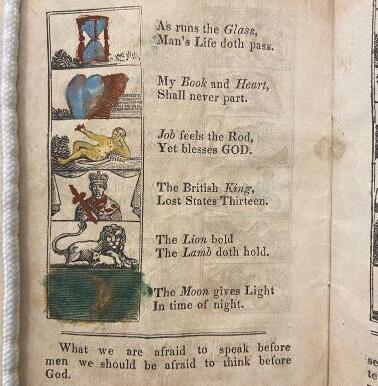 As runs the Glass,
Man's Life doth pass.
My Book and Heart,
Shall never part.
Job feels the Rod,
Yet blesses GOD.
The British King,
Lost States Thirteen.
The Lion bold
The Lamb doth hold.
The Moon gives Light
In time of night.
What we are afraid to speak before
men we should be afraid to think before
God.
se
te